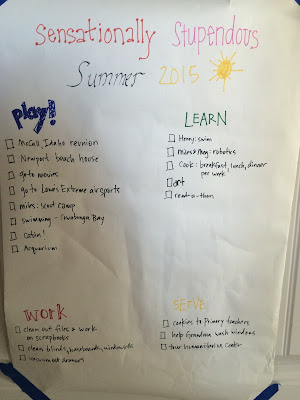 Sensationally Stupendous
Summer 2015
Play!
McCall, Idaho reunion
Newport beach house
go to movies
go to Lowes Extreme airsports
miles: scout camp
swimming - Cowabunga Bay
Cabin!
Acquarium
LEARN
Henry: swim
miles & Meg: robotics
Cook: breakfast, lunch, dinner
per week
art
read-a-thon
WORK
clean out files & work
on scrapbooks
clean blinds, baseboards, windowsills
basement drawers
SERVE
cookies to Primary teachers
help Grandma wash windows
tour humanitarian Center